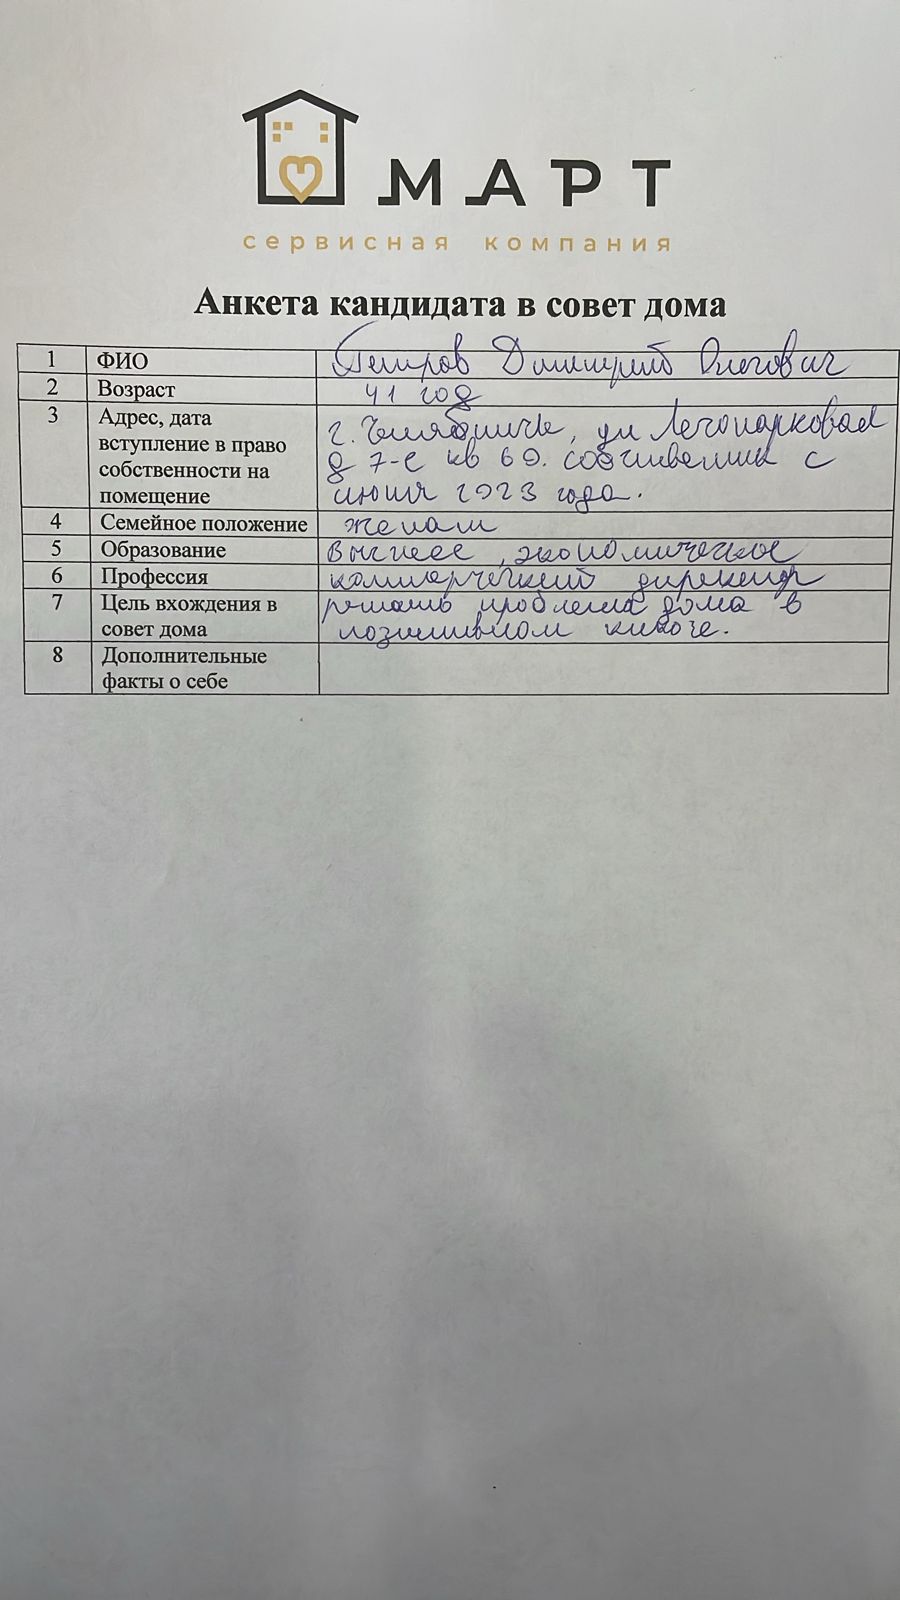 МАРТ
сервисная компания
Анкета кандидата в совет дома
1 ФИО Петров Дмитрий Олегович
2 Возраст 41 год
3 Адрес, дата вступление в право собственности на помещение
г. Челябинск, ул Лесопарковая
д 7-е кв 69. собственник с
июня 2023 года.
4 Семейное положение женат
5 Образование высшее, экономическое
6 Профессия коммерческий директор
7 Цель вхождения в совет дома
решать проблемы дома в
позитивном ключе.
8 Дополнительные
факты о себе